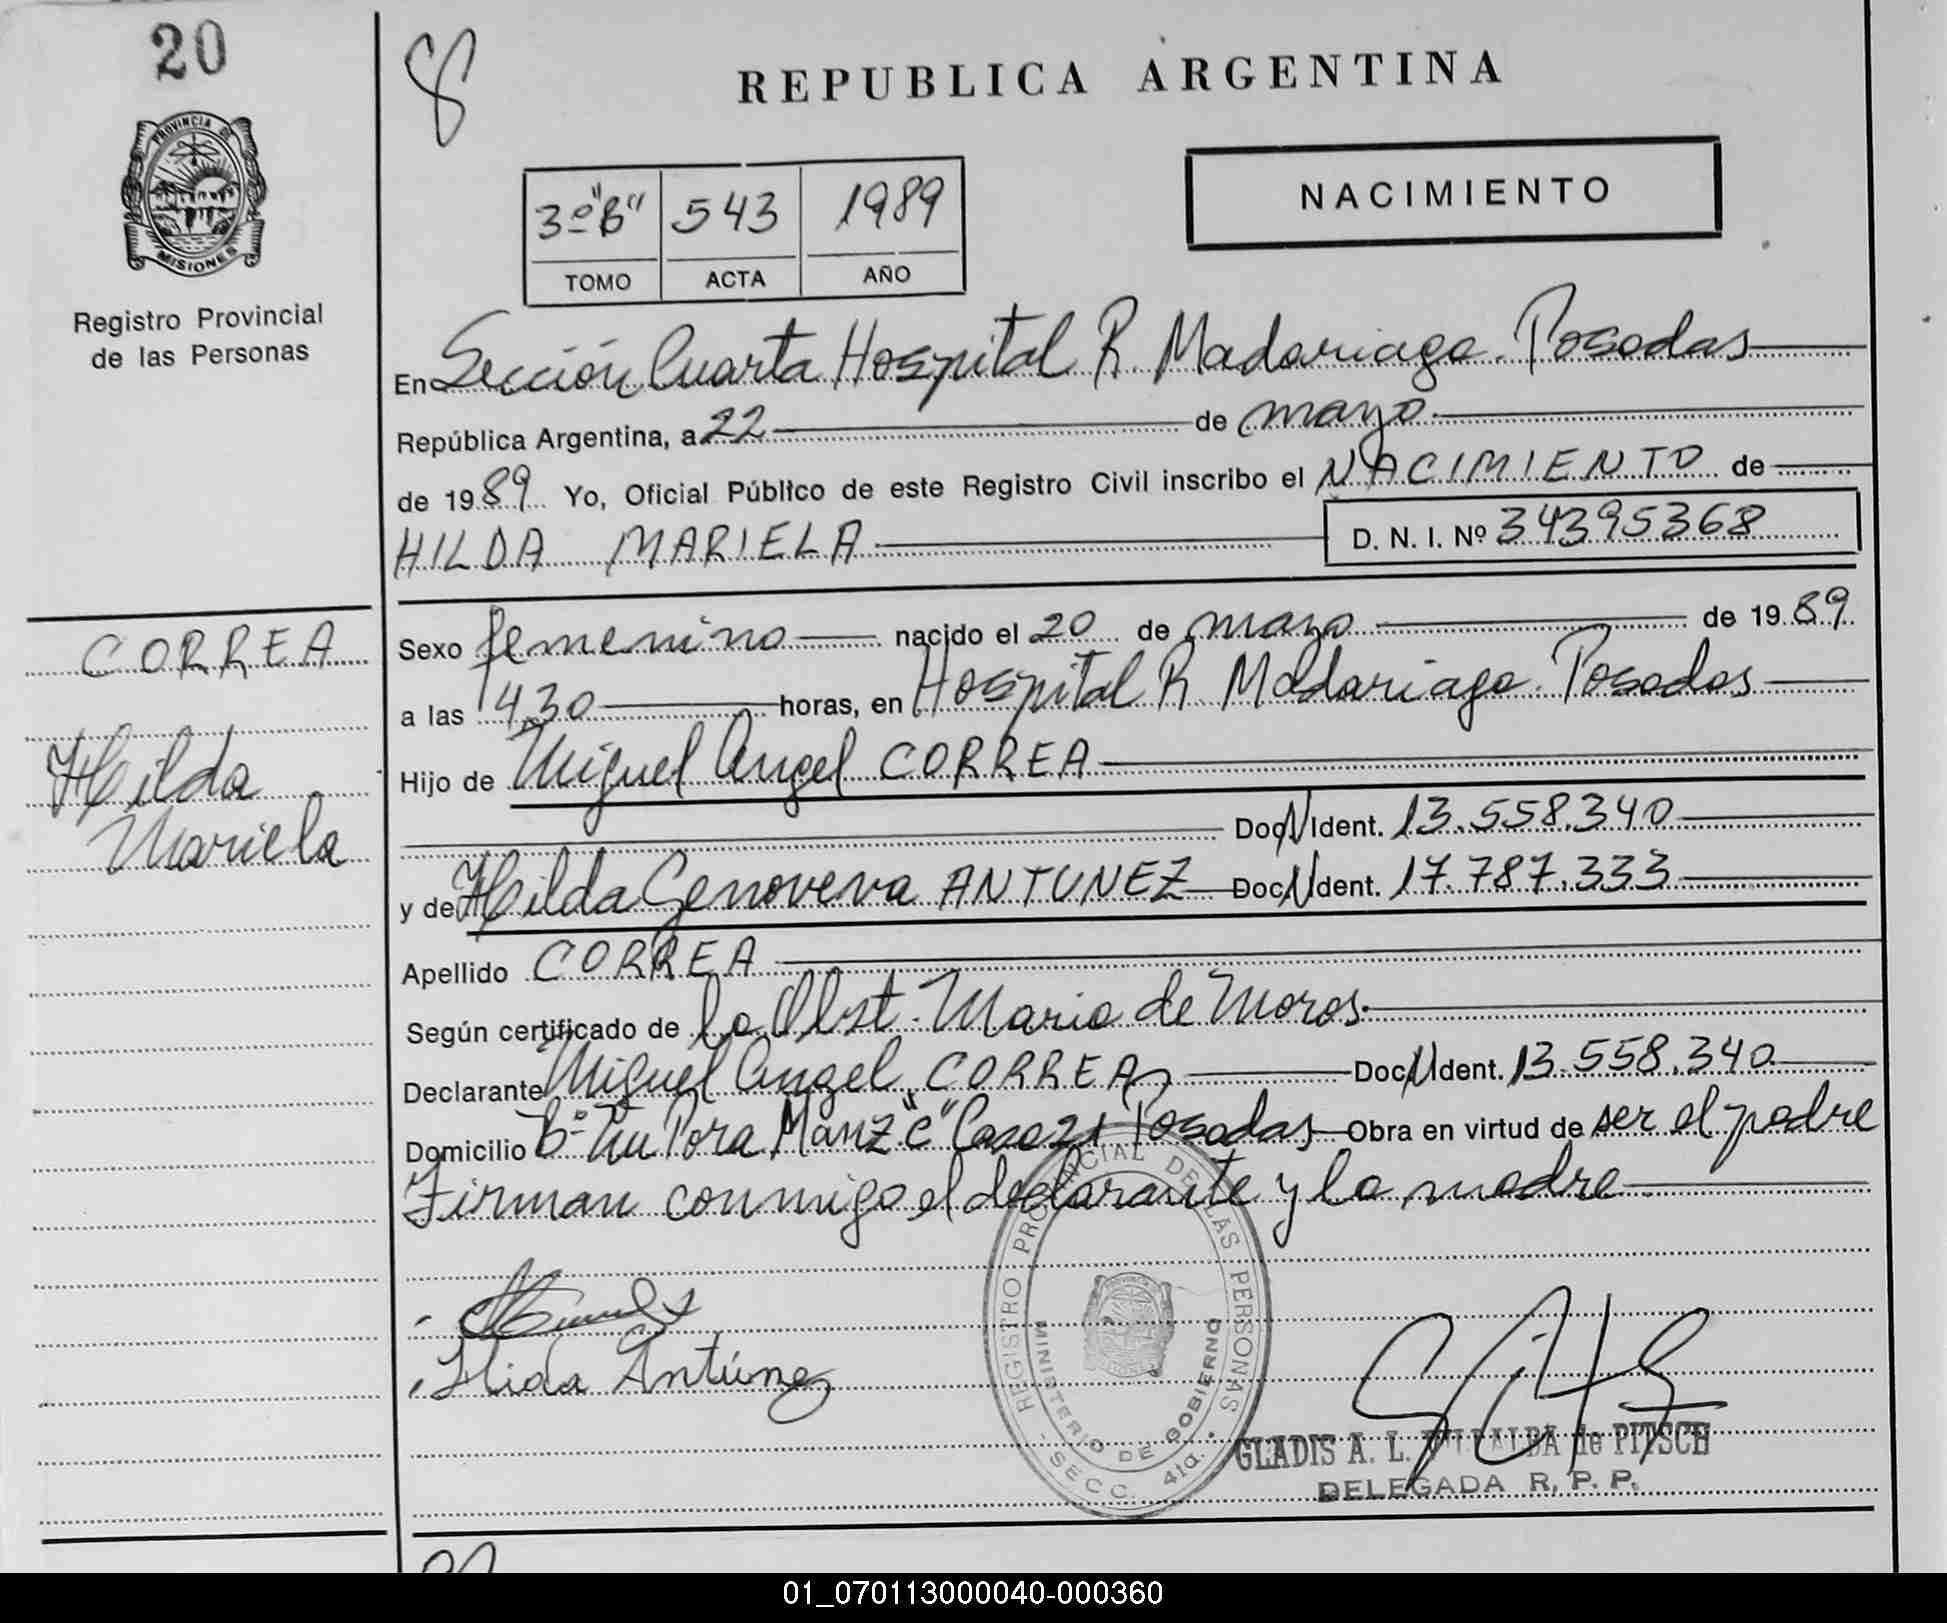 20
8
REPUBLICA ARGENTINA
PROVINCIA DE
MISIONES
Registro Provincial
de las Personas
3º "B" 543 1989
TOMO ACTA AÑO
NACIMIENTO
En Sección Cuarta Hospital R. Madariaga. Posadas
República Argentina, a 22 de mayo
de 1989 Yo, Oficial Público de este Registro Civil inscribo el NACIMIENTO de
HILDA MARIELA D. N. I. Nº 34395368
CORREA
Hilda
Mariela
Sexo femenino nacido el 20 de mayo de 1989
a las 14,30 horas, en Hospital R. Madariaga. Posadas
Hijo de Miguel Angel CORREA
Doc. N Ident. 13.558.340
y de Hilda Genoveva ANTUNEZ Doc. N Ident. 17.787.333
Apellido CORREA
Según certificado de la Obst. Maria de Moros
Declarante Miguel Angel CORREA Doc. N Ident. 13.558.340
Domicilio Bº Ñu Pora Manz "C" Casa 21 Posadas Obra en virtud de ser el padre
Firman conmigo el declarante y la madre
Hida Antúnez
REGISTRO PROVINCIAL DE LAS PERSONAS
MINISTERIO DE GOBIERNO
SECC. 4ta.
GLADIS A. L. VILLALBA de PITSCH
DELEGADA R. P. P.
01_070113000040-000360